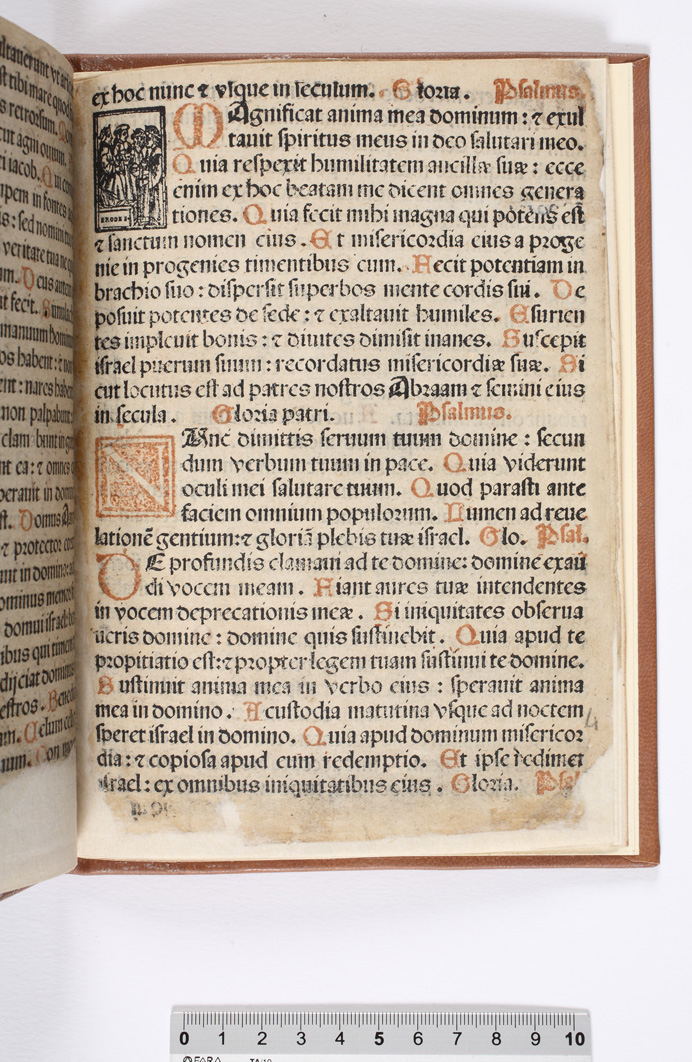 ex hoc nunc ⁊ vsque in seculum. Gloria. Psalmus.
MAgnificat anima mea dominum : ⁊ exul
tauit spiritus meus in deo salutari meo.
Quia respexit humilitatem ancillæ suæ : ecce
enim ex hoc beatam me dicent omnes genera
tiones. Quia fecit mihi magna qui potens est
⁊ sanctum nomen eius. Et misericordia eius a proge
nie in progenies timentibus eum. Fecit potentiam in
brachio suo : dispersit superbos mente cordis sui. De
posuit potentes de sede : ⁊ exaltauit humiles. Esurien
tes impleuit bonis : ⁊ diuites dimisit inanes. Suscepit
israel puerum suum : recordatus misericordiæ suæ. Si
cut locutus est ad patres nostros Abraam ⁊ semini eius
in secula. Gloria patri. Psalmus.
NUnc dimittis seruum tuum domine : secun
dum verbum tuum in pace. Quia viderunt
oculi mei salutare tuum. Quod parasti ante
faciem omnium populorum. Lumen ad reue
lationē gentium:⁊ gloriā plebis tuæ israel. Glo. Psal.
DE profundis clamaui ad te domine: domine exau
di vocem meam. Fiant aures tuæ intendentes
in vocem deprecationis meæ. Si iniquitates obserua
ueris domine : domine quis sustinebit. Quia apud te
propitiatio est:⁊ propter legem tuam sustinui te domine.
Sustinuit anima mea in verbo eius : sperauit anima
mea in domino. A custodia matutina vsque ad noctem
speret israel in domino. Quia apud dominum misericor
dia : ⁊ copiosa apud eum redemptio. Et ipse redimet
israel : ex omnibus iniquitatibus eius. Gloria. Psal
4
0 1 2 3 4 5 6 7 8 9 10